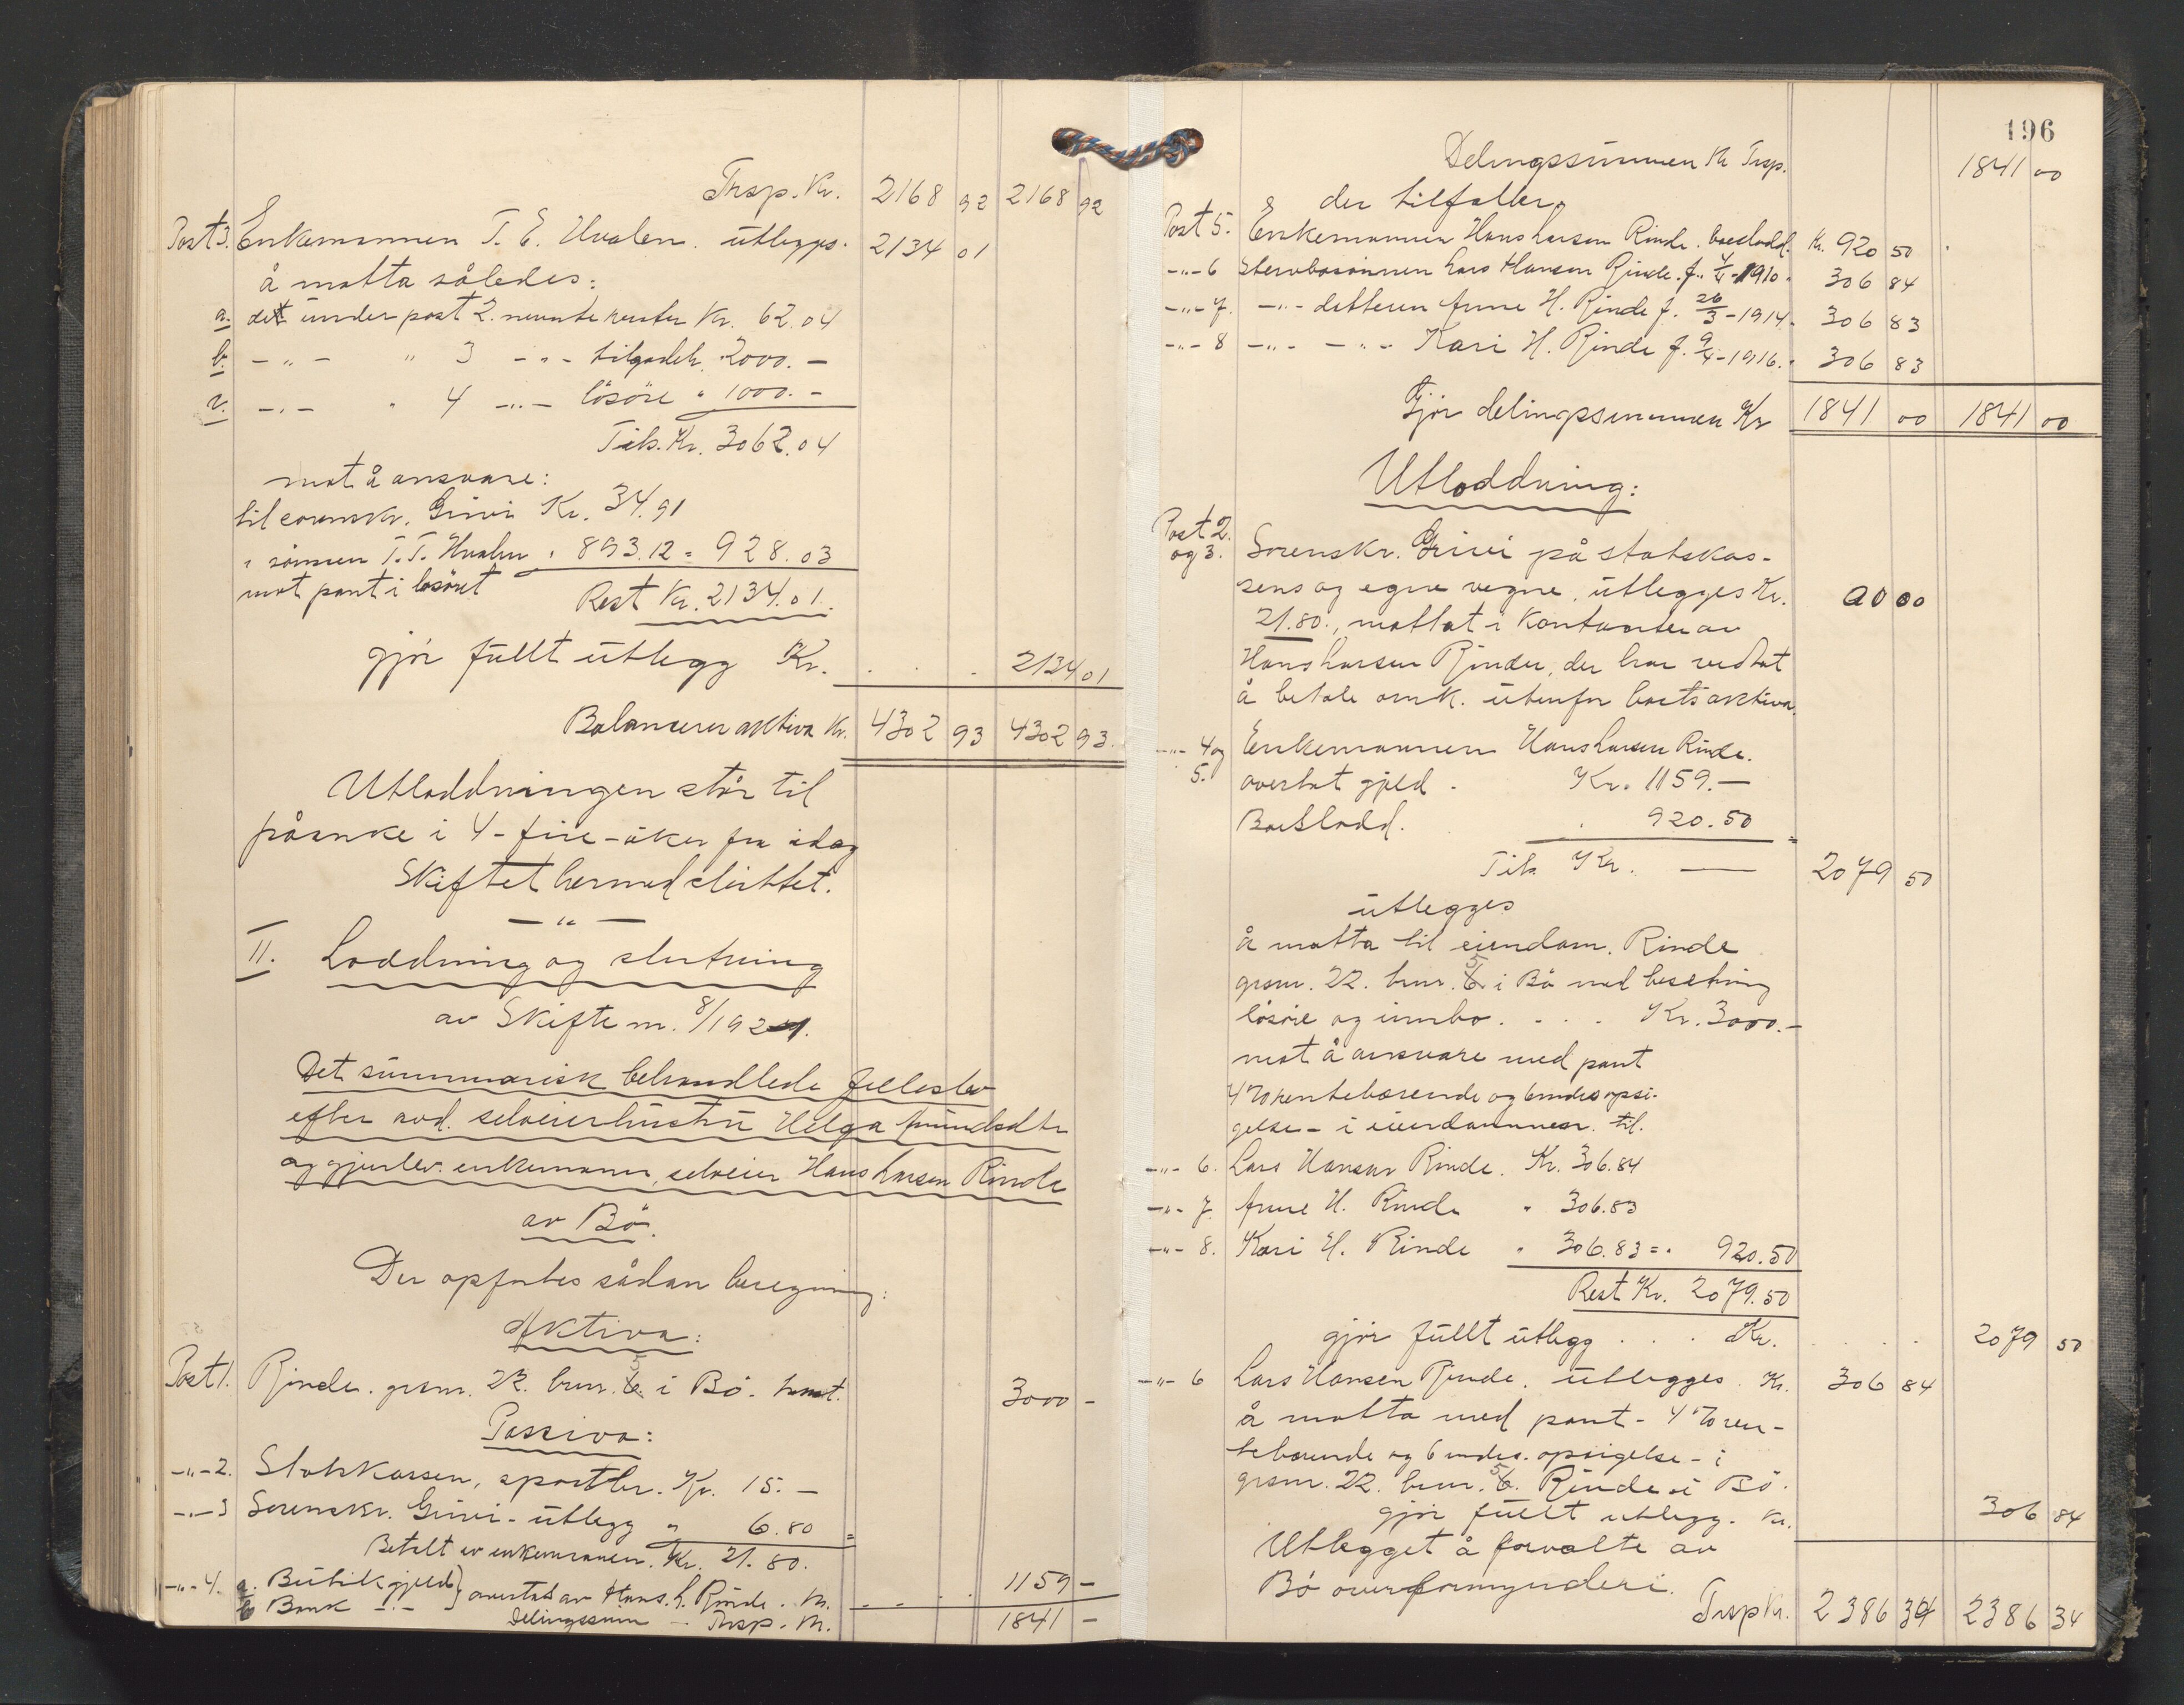 Trsp. Kr. 2168 92 2168 92
Post 3. Enkemannen T. E. Hvalen. utlegges. 2134 01
å motta således:
a. det under post 2. nevnte kr. 62.04
b. -"- " 3 -"- tilgodeh. 2000.-
c. -"- " 4 -"- lösöre " 1000.-
Tils. Kr. 3062.04
mot å ansvare:
til sorenskr. Grivi Kr. 34.91
" sönnen T. T. Hvalen " 893.12 = 928.03
mot pant i lösöret
Rest Kr. 2134.01.
gjör fullt utlegg Kr. . . . 2134 01
Balancerer aktiva Kr. 4302 93 4302 93.
Utloddningen står til
påanke i 4-fire-uker fra idag
Skiftet hermed sluttet.
— " —
II. Loddning og slutning
av Skifte nr. 8/1924.
Det summarisk behandlede fellesbo
efter avd. selveierhustru Helga Amundsdtr
og gjenlev. enkemann, selveier Hans Larsen Rinde
av Bö.
Der opförtes sådan beregning:
Aktiva:
Post 1. Rinde. grsnr. 22. brnr. 5 i Bö. 3000 -
Passiva:
-"- 2. Statskassen, sportler. Kr. 15.-
-"- 3 Sorenskr. Grivi - utlegg " 6.80 =
Betalt av enkemannen. Kr. 21.80.
-"- 4. a. Butikgjeld } overtat av Hans L. Rinde. Kr. 1159 -
b Bank -"-
Delingssum - Trsp. Kr. 1841 -
196
Delingssummen Kr Trsp. 1841 00
der tilfaller
Post 5. Enkemannen Hans Larsen Rinde. boeslodd. Kr. 920 50
-"- 6 Stervbosönnen Lars Hansen Rinde. f. 4/4-1910. 306 84
-"- 7. -"- datteren Anne H. Rinde f. 26/3-1914. 306 83
-"- 8 -"- -"- Kari H. Rinde f. 9/4-1916. " 306 83
Gjör delingssummen Kr 1841 00 1841 00
Utloddning:
Post 2. og 3. Sorenskr. Grivi på statskas-
sens og egne vegne, utlegges Kr. 00 00
21.80., mottat i kontanter av
Hans Larsen Rinde, der har vedtat
å betale omk. utenfor boets aktiva.
-"- 4 og 5. Enkemannen Hans Larsen Rinde.
overtat gjeld . Kr. 1159.—
Boeslodd. . 920.50 =
Tils Kr. — 2079 50
utlegges
å motta til eiendom. Rinde
grsnr. 22. brnr. 5 i Bö med besetning
lösöre og innbo. . . . Kr. 3000.-
mot å ansvare med pant
4% rentebærende og 6 mndrs opsi-
gelse - i eiendommen. til.
-"- 6. Lars Hansen Rinde. Kr. 306.84
-"- 7. Anne H. Rinde " 306.83
-"- 8. Kari H. Rinde " 306.83 = " 920.50
Rest Kr. 2079.50
gjör fullt utlegg . . . Kr. . . . 2079 50
-"- 6 Lars Hansen Rinde. utlegges. Kr. 306 84
å motta med pant - 4% ren-
tebærende og 6 mndrs. opsigelse - i
grsnr. 22. brnr. 5. Rinde i Bö.
gjör fullt utlegg. Kr. 306 84
Utlegget å forvalte av
Bö overformynderi.
Trsp Kr. 2386 34 2386 34